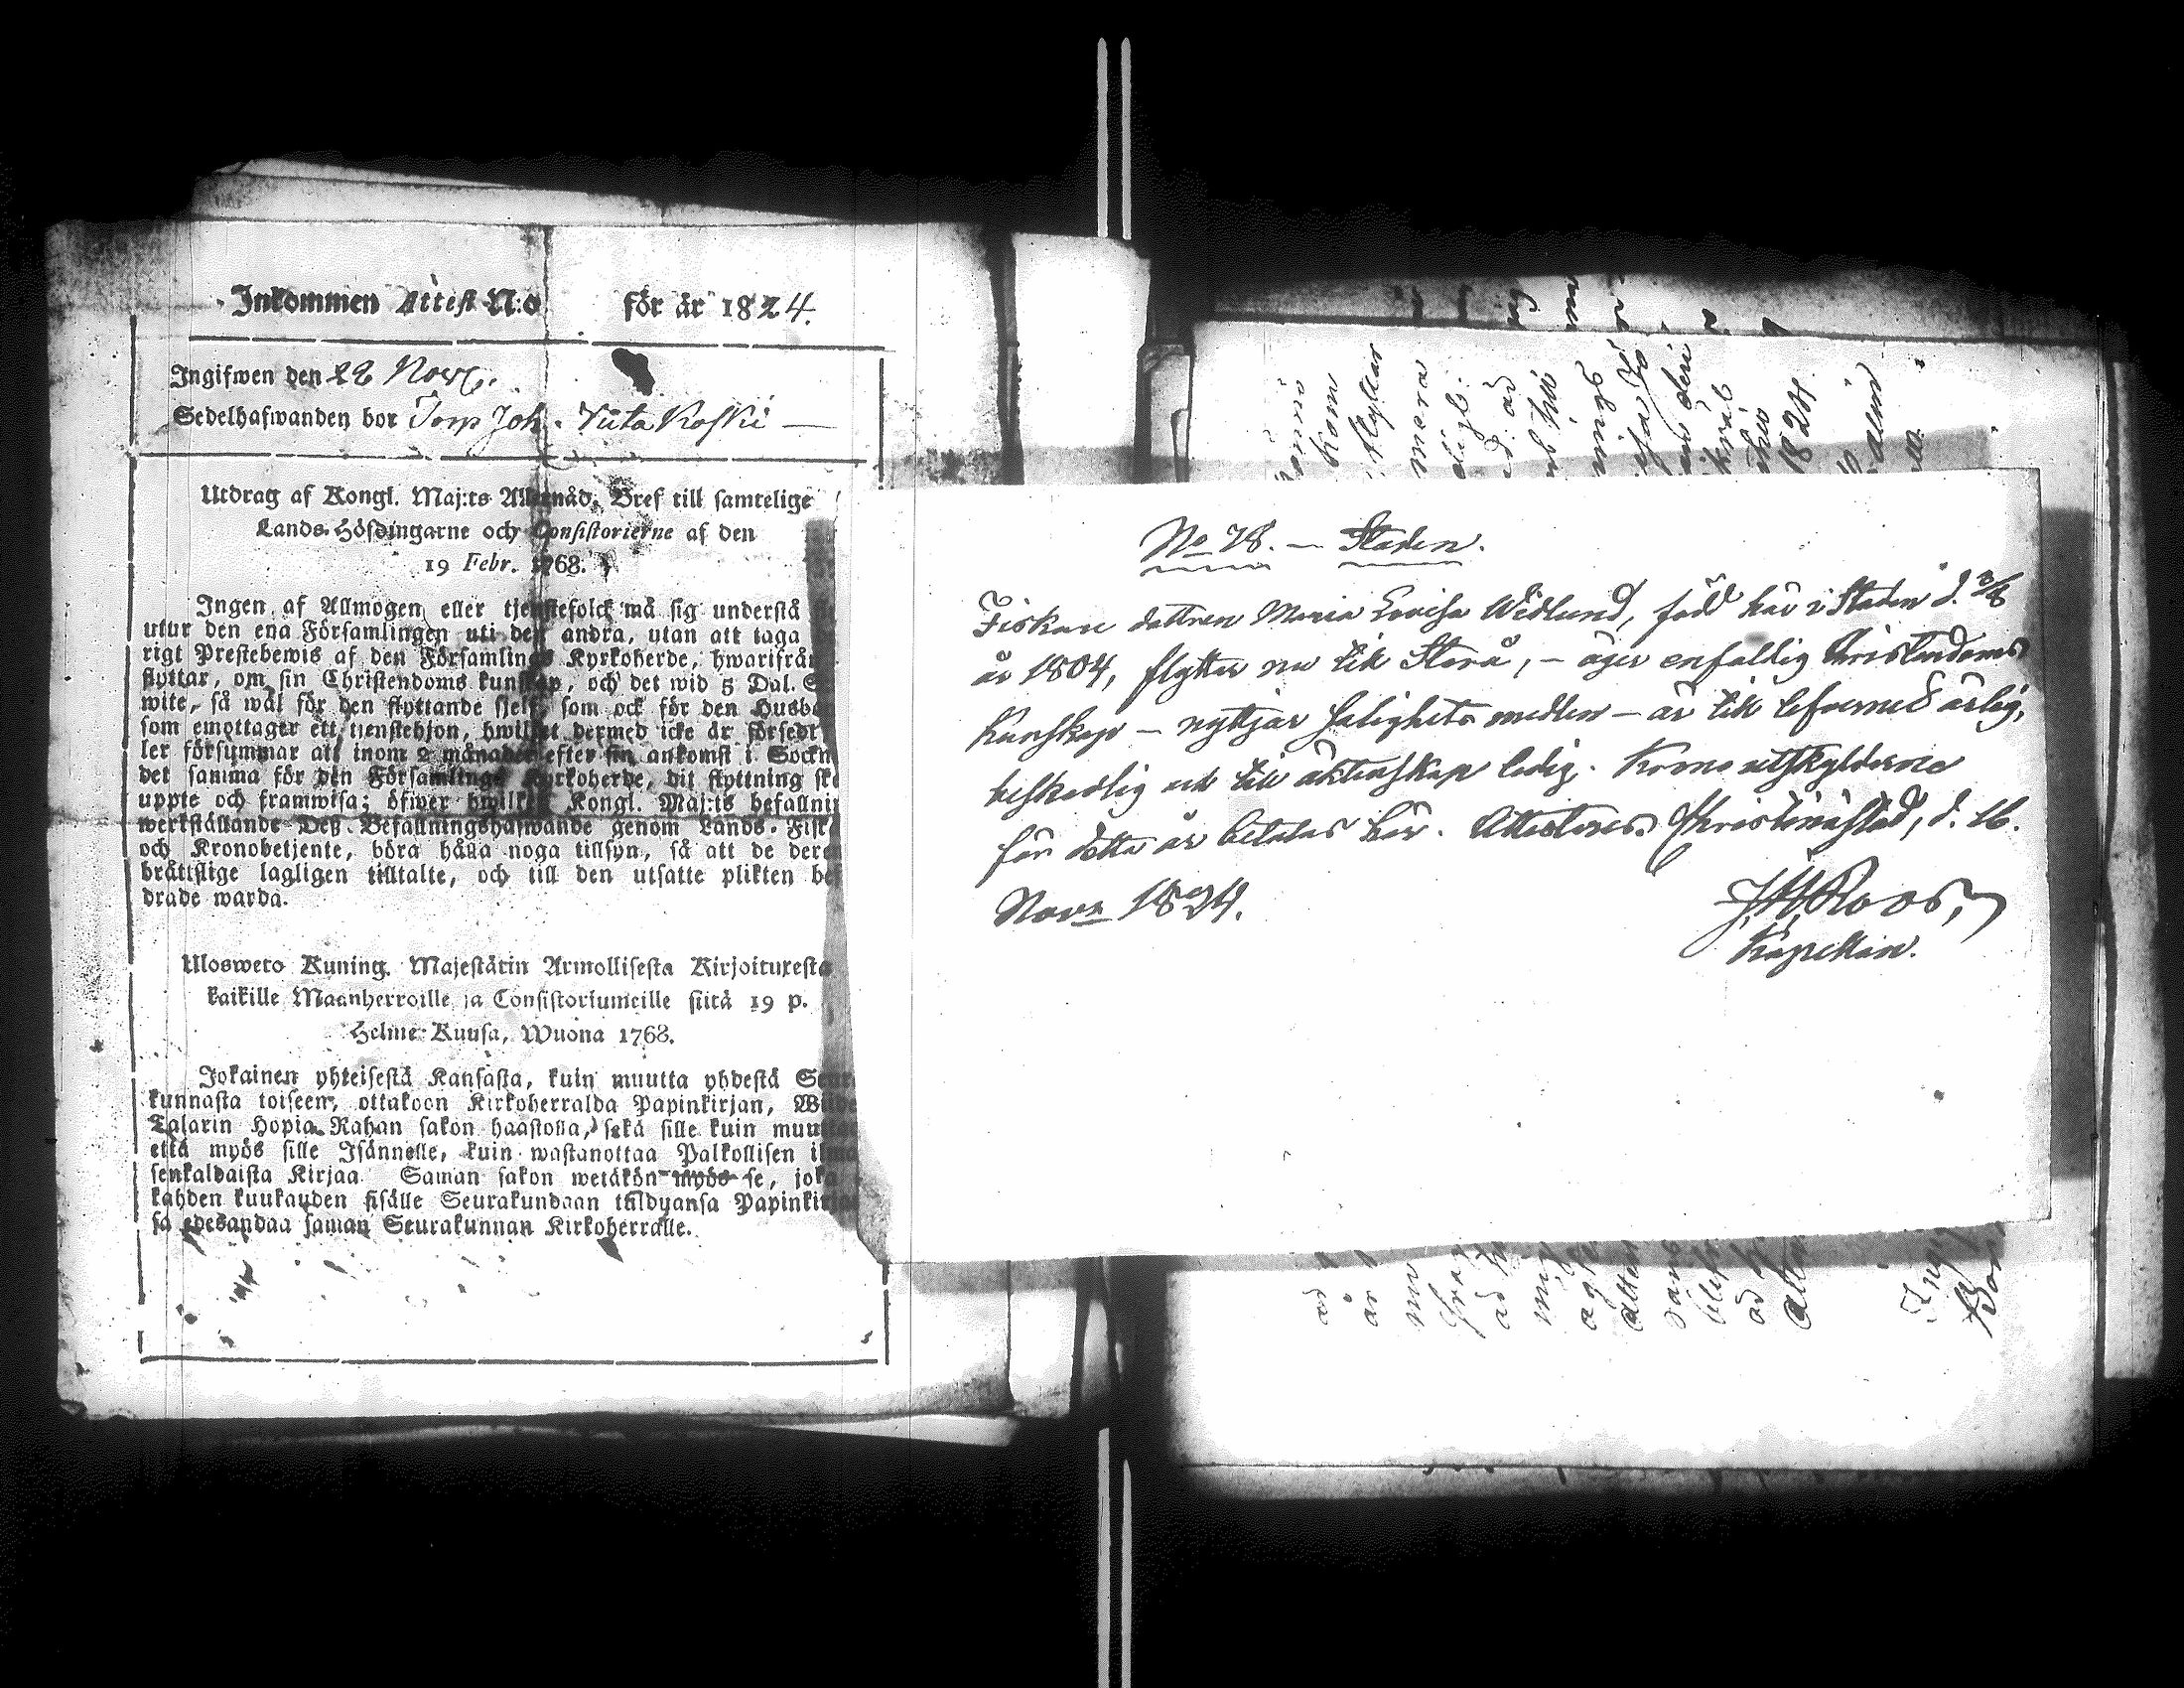 Inkommen Attest N:o för år 1824.
Ingifwen den 22 Nov.
Sedelhafwanden bor Torp Joh. Viita Koski —
Utdrag af Kongl. Maj:ts Allernåd. Bref till samtelige
Lands-Höfdingarne och Consistorierne af den
19 Febr. 1768.
Ingen af Allmogen eller tjenstefolck må sig understå
utur den ena Församlingen uti den andra, utan att taga
rigt Prestebewis af den Församlings Kyrkoherde, hwarifrån
flyttar, om sin Christendoms kunskap, och det wid 5 Dal. S
wite, så wäl för den flyttande sjelf, som ock för den Husb
som emottager ett tienstehjon, hwilket dermed icke är försedt
ler försummar att inom 2 månader efter sin ankomst i Sockn
det samma för den Församlings Kyrkoherde, dit flyttning sk
uppte och framwisa; öfwer hwilket Kongl. Maj:ts befallni
werkställande Deß Befallningshafwande genom Lands-Fisk
och Kronobetjente, böra hålla noga tillsyn, så att de der
bråttslige lagligen tilltalte, och till den utsatte plikten be
drade warda.
Ulosweto Kuning. Majestätin Armollisesta Kirjoituxesta
kaikille Maanherroille ja Consistoriumeille siitä 19 p.
Helme-Kuusa, Wuona 1768.
Jokainen yhteisestä Kansasta, kuin muutta yhdestä Seur
kunnasta toiseen, ottakoon Kirkoherralda Papinkirjan, Wiide
Talarin Hopia Rahan sakon haastolla, sekä sille kuin muutta
että myös sille Isännelle, kuin wastanottaa Palkollisen ilma
senkaldaista Kirjaa. Saman sakon wetäkön myös se, joka
kahden kuukauden sisälle Seurakundaan tuldyansa Papinkirja
sa edesandaa saman Seurakunnan Kirkoherralle.
No 78. — Staden.
Fiskare dottren Maria Lovisa Wedlund, född här i Staden d. 3/8
år 1804, flyttar nu till Storå, – äger enfaldig Christendoms
Kunskap – nyttjar salighets medlen – är till lefverned ärlig,
beskedlig och till äktenskap ledig. Krono utskylderne
för detta år betalas här. Attesteras, Christinæstad, d. 16.
Novr 1824.
J. H. Roos,
Kapellan.
1824.